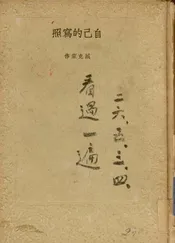 自己的寫照
臧克家作
二六、五、三、四、
看過一遍